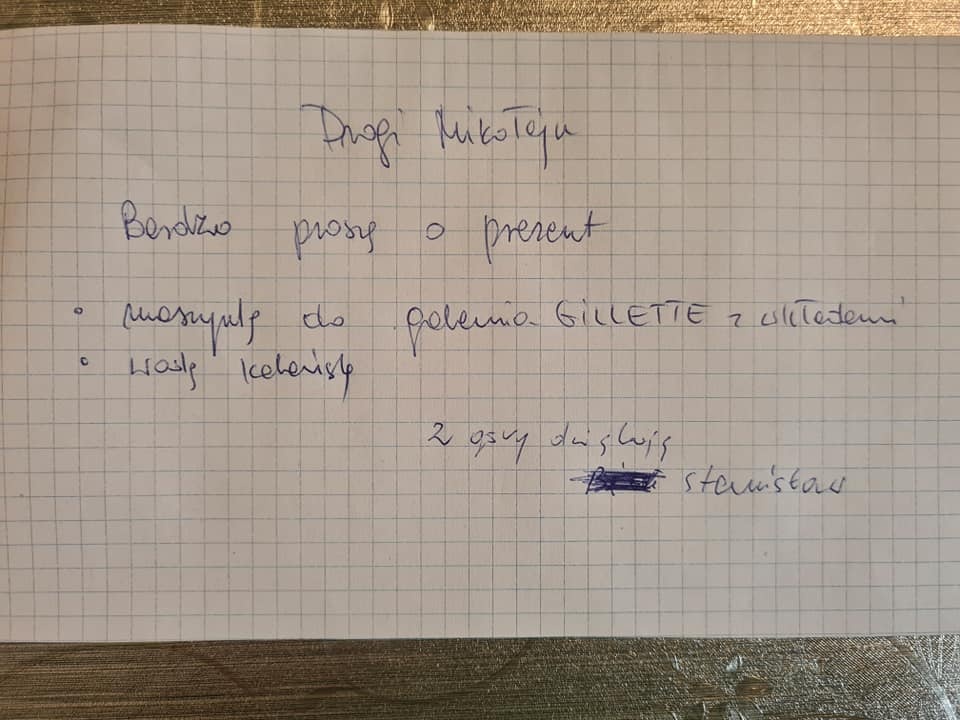 Drogi Mikołaju
Bardzo proszę o prezent
• maszynkę do golenia GILLETTE z wkładami
• wodę kolońską
Z góry dziękuję
Stanisław